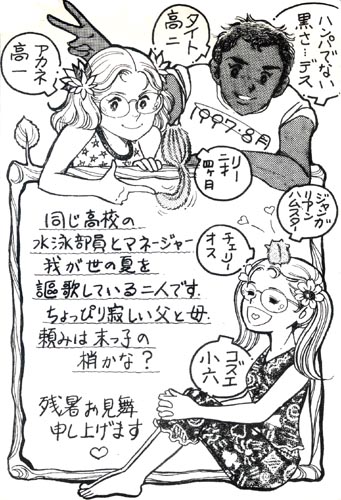 ハンパでない
黒さ…デス
タイト
高二
アカネ
高一
1997・8月
リー
二才
四ヶ月
ジャンガ
リアン
ハムスター
チェリー
オス
コズエ
小六
同じ高校の
水泳部員とマネージャー
我が世の夏を
謳歌している二人です
ちょっぴり寂しい父と母
頼みは末っ子の
梢かな？
残暑お見舞
申し上げます